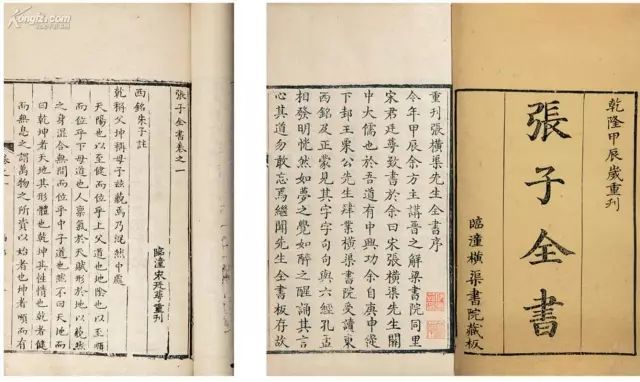 乾隆甲辰歲重刊
張子全書
臨潼橫渠書院藏板
重刊張橫渠先生全書序
今年甲辰余方主講晉之解梁書院同里
宋君廷萼致書於余曰宋張橫渠先生關
中大儒也於吾道有中興功余自庚申從
下邽王零公先生肄業橫渠書院受讀東
西銘及正蒙見其字字句句與六經孔孟
相發明恍然如夢之覺如醉之醒誦其言
心其道勿敢忘焉繼聞先生全書板存故
張子全書卷之一
臨潼宋廷萼重刊
西銘朱子註
乾稱父坤稱母予茲藐焉乃混然中處
天陽也以至健而位乎上父道也地陰也以至順
而位乎下母道也人稟氣於天賦形於地以藐然
之身混合無間而位乎中子道也然不曰天地而
曰乾坤者天地其形體也乾坤其性情也乾者健
而無息之謂萬物之所資以始者也坤者順而有
Kongfz.com